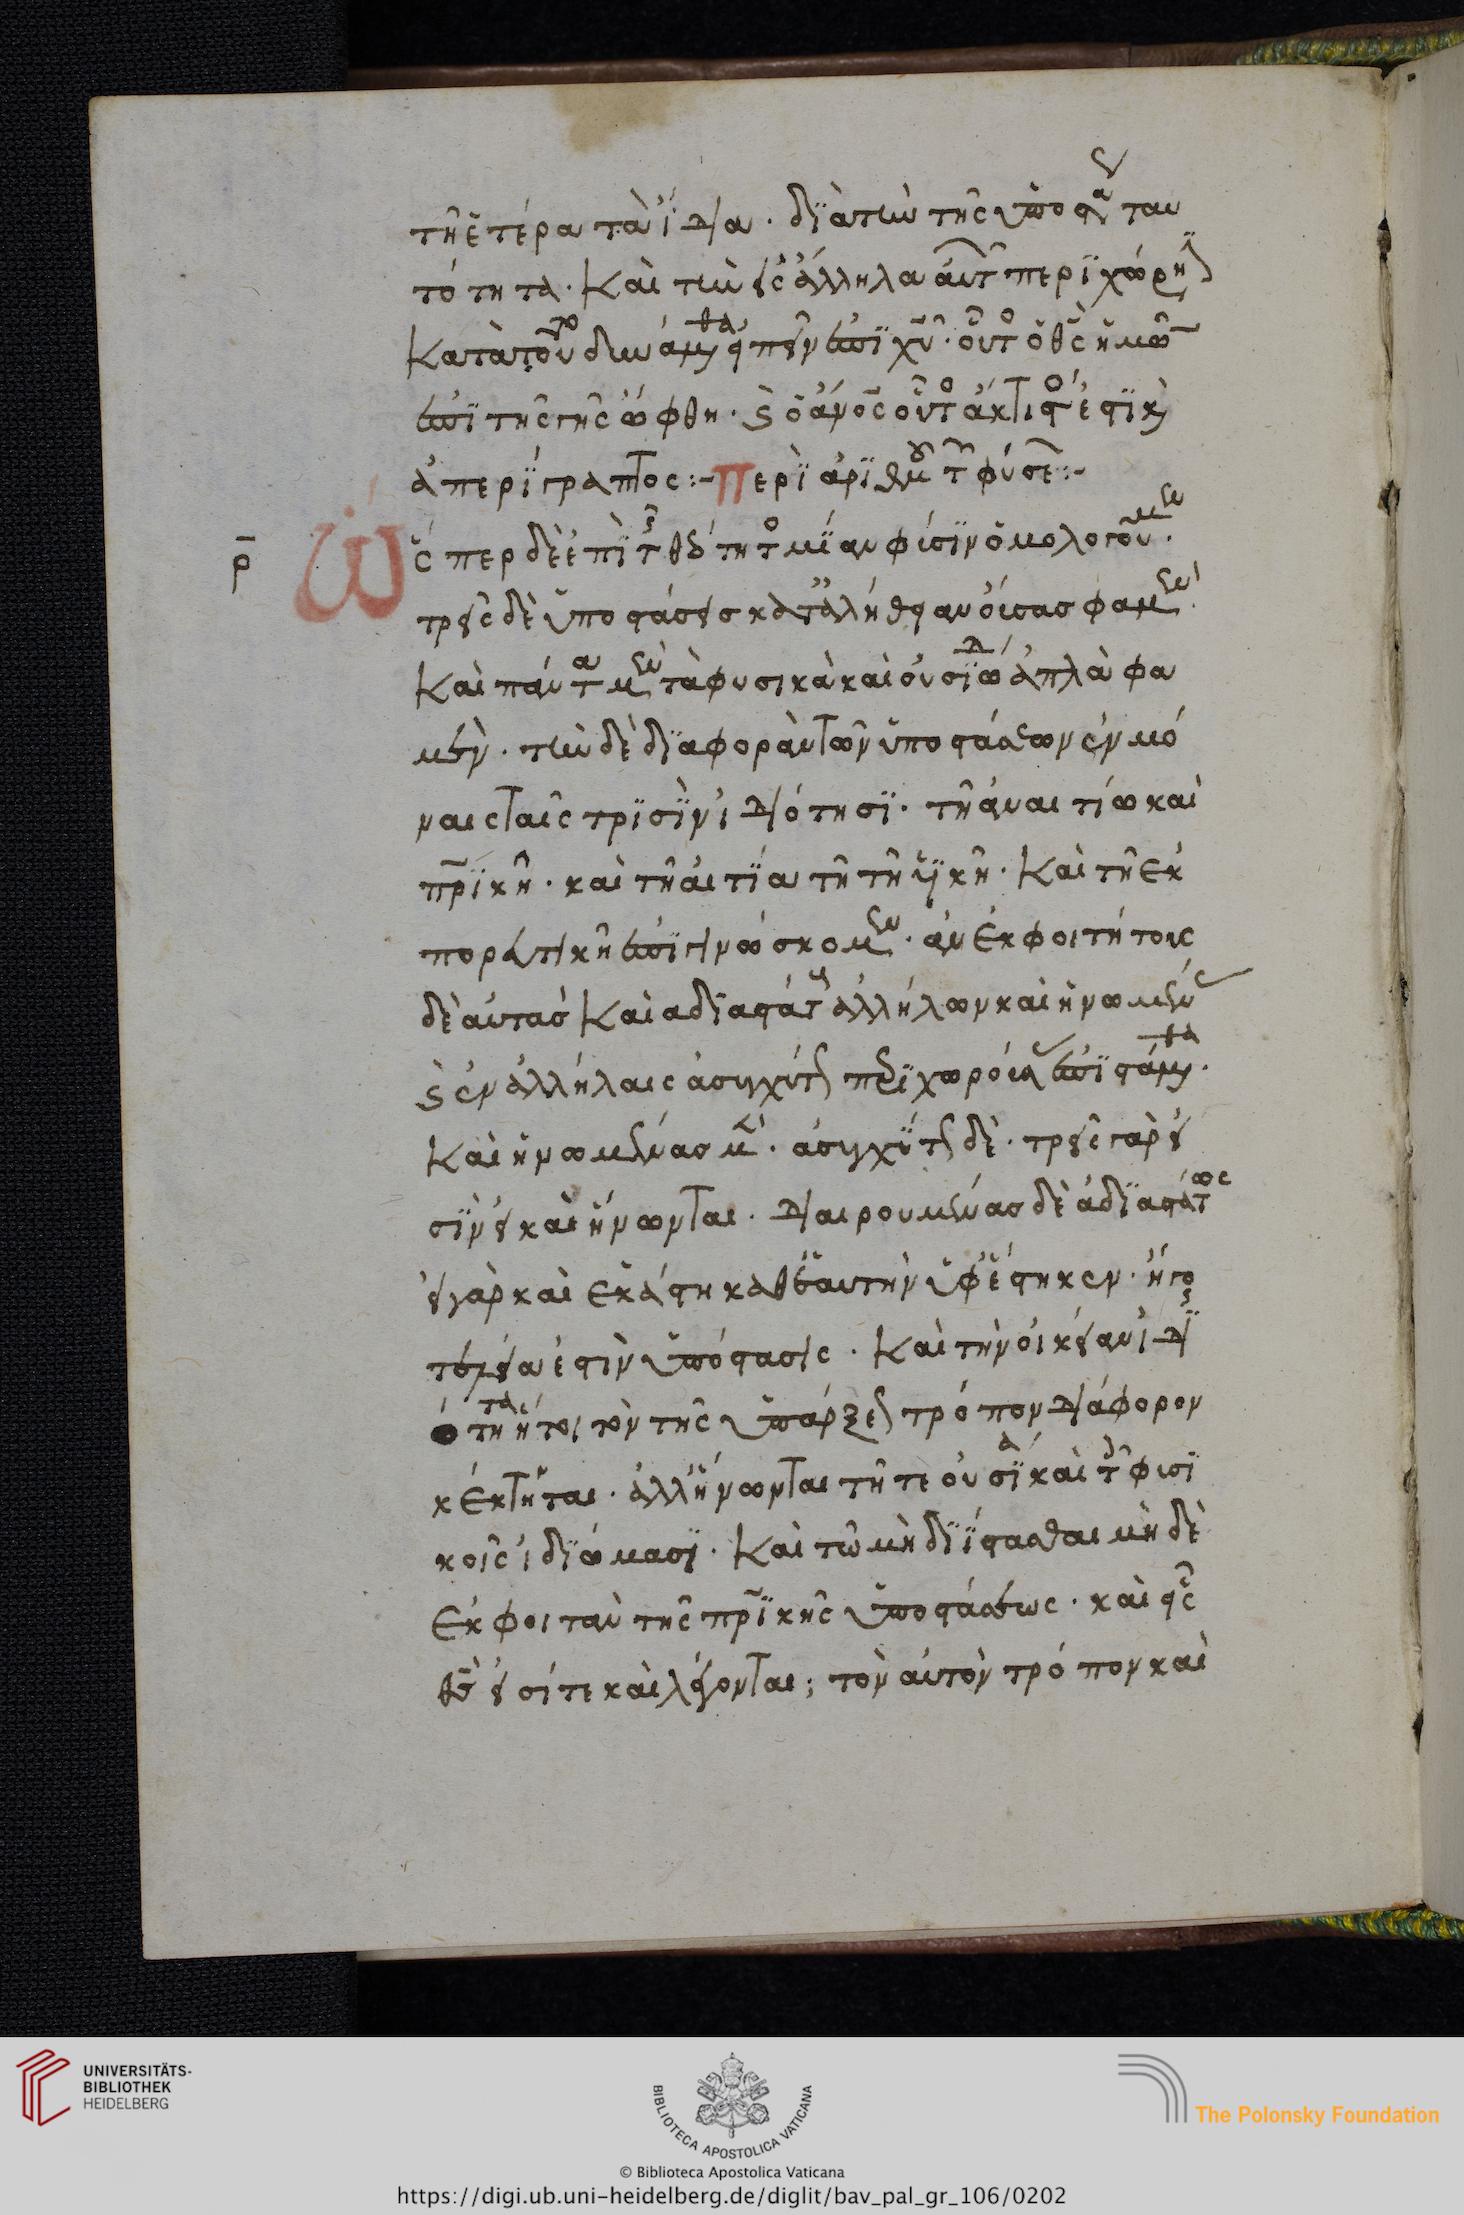 τῆ ἑτέρα τὰ ἴδια · διὰ τὴν τῆς ὑποστάσεως ταυ
τότητα · Καὶ τὴν εἰς ἄλληλα αὐτῶν περιχώρησιν
Κατὰ τοῦτο δυνάμεθα εἰπεῖν ἐπὶ χυ · οὗτος ὁ θς ἡμῶν
ἐπὶ τῆς γῆς ὤφθη · καὶ ὁ ἄνος οὗτος ἄκτιστός ἐστι καὶ
ἀπερίγραπτος :- Περὶ ἀριθμοῦ τῶν φύσεων :-
ρ Ὥς περ δὲ ἐπὶ τῆς θεότητος μίαν φύσιν ὁμολογοῦμεν ·
τρεῖς δὲ ὑποστάσεις κατὰ ἀλήθειαν οὔσας φαμέν ·
Καὶ πάντα μὲν τὰ φυσικὰ καὶ οὐσιώδη ἁπλὰ φα
μὲν · τὴν δὲ διαφορὰν τῶν ὑποστάσεων ἐν μό
ναις ταῖς τρισὶν ἰδιότησι · τῆ ἀναιτίω καὶ
πρικῆ · καὶ τῆ αἰτία τῆ τῆ υἱκῆ · Καὶ τῆ ἐκ
πορευτικῆ ἐπιγινώσκομεν · ἀνεκφοιτήτους
δὲ αὐτὰς Καὶ ἀδιαστάτους ἀλλήλων καὶ ἡνωμένας
καὶ ἐν ἀλλήλαις ἀσυγχύτως περιχωρούσας ἐπιστάμεθα ·
Καὶ ἡνωμένας μὲν · ἀσυγχύτως δὲ · τρεῖς γὰρ εἰ
σὶν εἰ καὶ ἥνωνται · διαιρουμένας δὲ ἀδιαστάτως
εἰ γὰρ καὶ ἑκάστη καθ' ἑαυτὴν ὑφέστηκεν · ἤγουν
τελεία ἐστὶν ὑπόστασις · Καὶ τὴν οἰκείαν ἰδι
ότητα ἤτοι τὸν τῆς ὑπάρξεως τρόπον διάφορον
κέκτηται · ἀλλ' ἥνωνται τῆ τε οὐσία καὶ τοῖς φυσι
κοῖς ἰδιώμασι · Καὶ τῶ μὴ διΐστασθαι μὴ δὲ
ἐκφοιτᾶν τῆς πρικῆς ὑποστάσεως · καὶ εἷς
θς εἰσί τε καὶ λέγονται ; τὸν αὐτὸν τρόπον καὶ
UNIVERSITÄTS-
BIBLIOTHEK
HEIDELBERG
BIBLIOTECA APOSTOLICA VATICANA
© Biblioteca Apostolica Vaticana
The Polonsky Foundation
https://digi.ub.uni-heidelberg.de/diglit/bav_pal_gr_106/0202